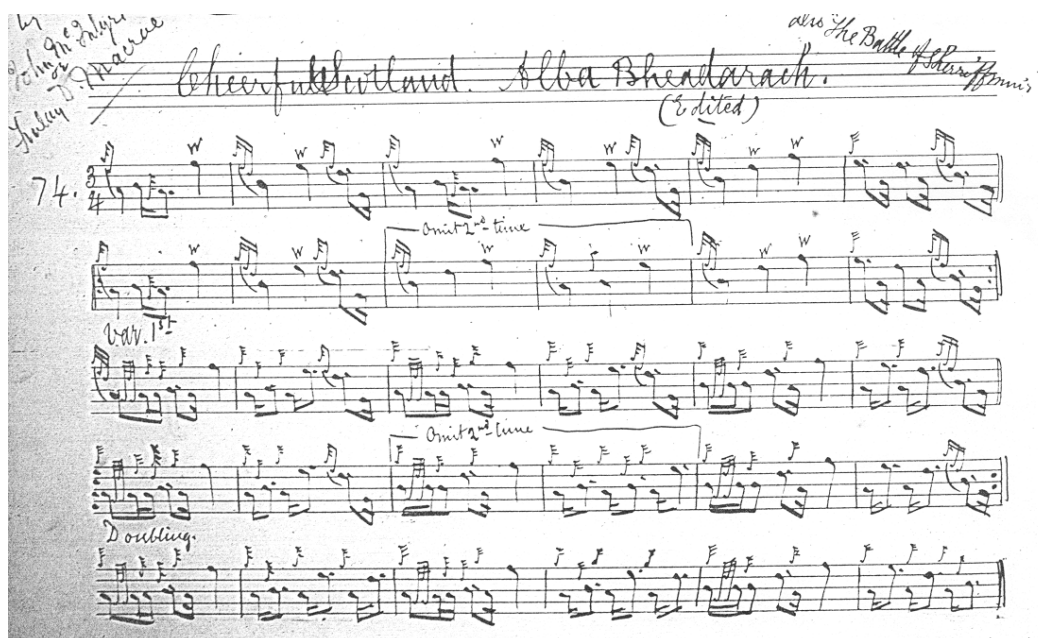 by
John McIntyre
Finlay D. Macrae
also The Battle of Sherriffmuir
Cheerful Scotland. Alba Bheadarach.
(Edited)
74. 3/4
W W W W W W W
Omit 2nd time
W W W W W W W
Var. 1st
Omit 2nd time
Doubling.